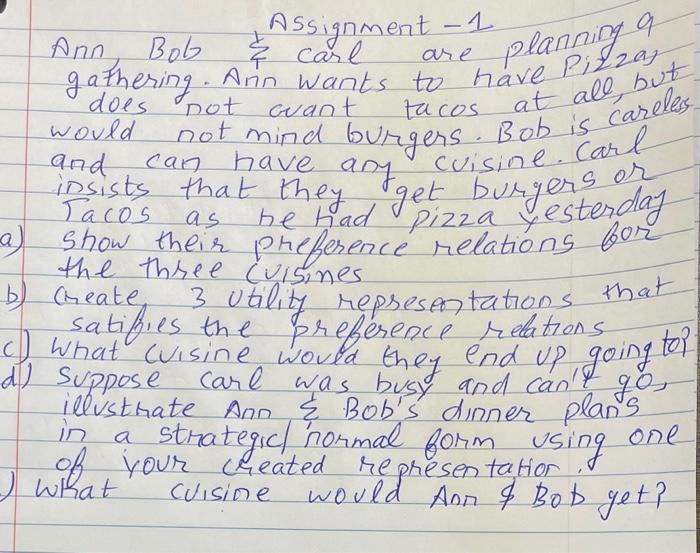 Assignment - 1
Ann, Bob & Carl are planning a
gathering. Ann wants to have Pizza,
does not want tacos at all, but
would not mind burgers. Bob is careless
and can have any cuisine. Carl
insists that they get burgers or
Tacos as he had pizza yesterday
a) Show their preference relations for
the three cuisines
b) Create 3 utility representations that
satifies the preference relations
c) What cuisine would they end up going to?
d) Suppose Carl was busy and can't go,
illustrate Ann & Bob's dinner plans
in a strategic/ normal form using one
of your created representation.
) What cuisine would Ann & Bob get?